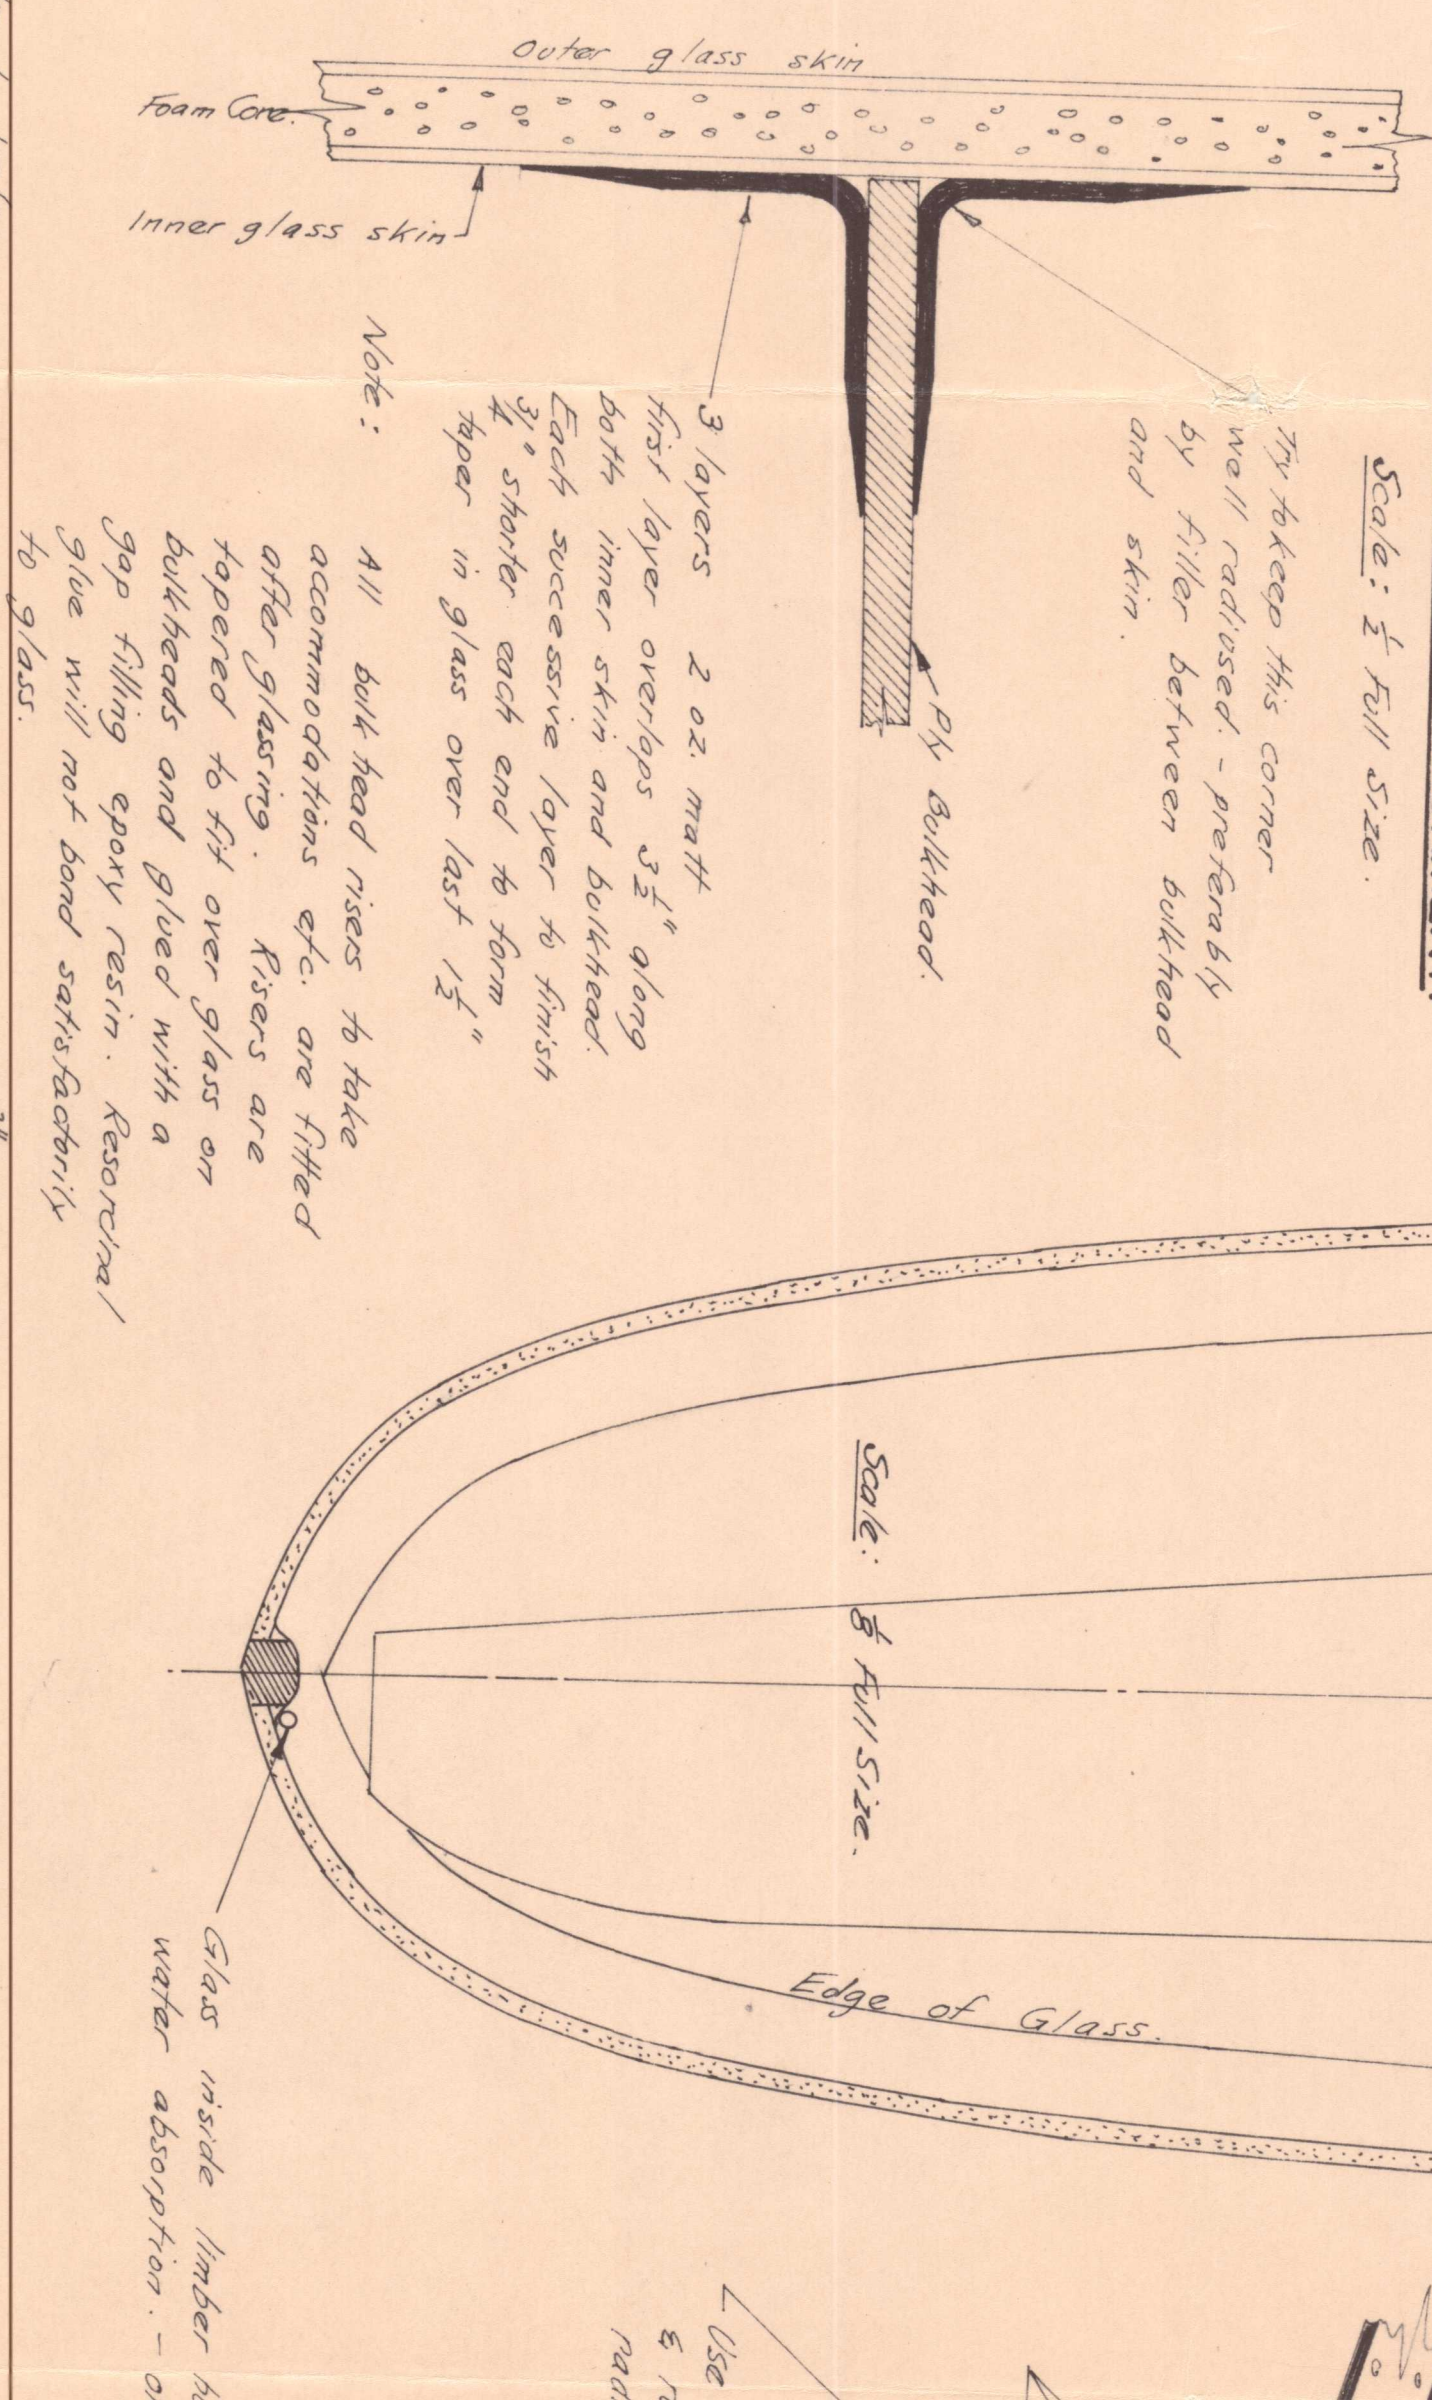 Outer glass skin
Foam Core.
Inner glass skin
Scale: ½ Full Size.
Try to keep this corner
well radiused. - preferably
by filler between bulkhead
and skin.
Ply Bulkhead.
3 layers 2 oz. matt
first layer overlaps 3½" along
both inner skin and bulkhead.
Each successive layer to finish
¾" shorter each end to form
taper in glass over last 1½"
Note:
All bulkhead risers to take
accommodations etc. are fitted
after glassing. Risers are
tapered to fit over glass on
bulkheads and glued with a
gap filling epoxy resin. Resorcinal
glue will not bond satisfactorily
to glass.
Scale: ⅛ Full Size.
Edge of Glass.
Glass inside limber
water absorption. -
Use
&